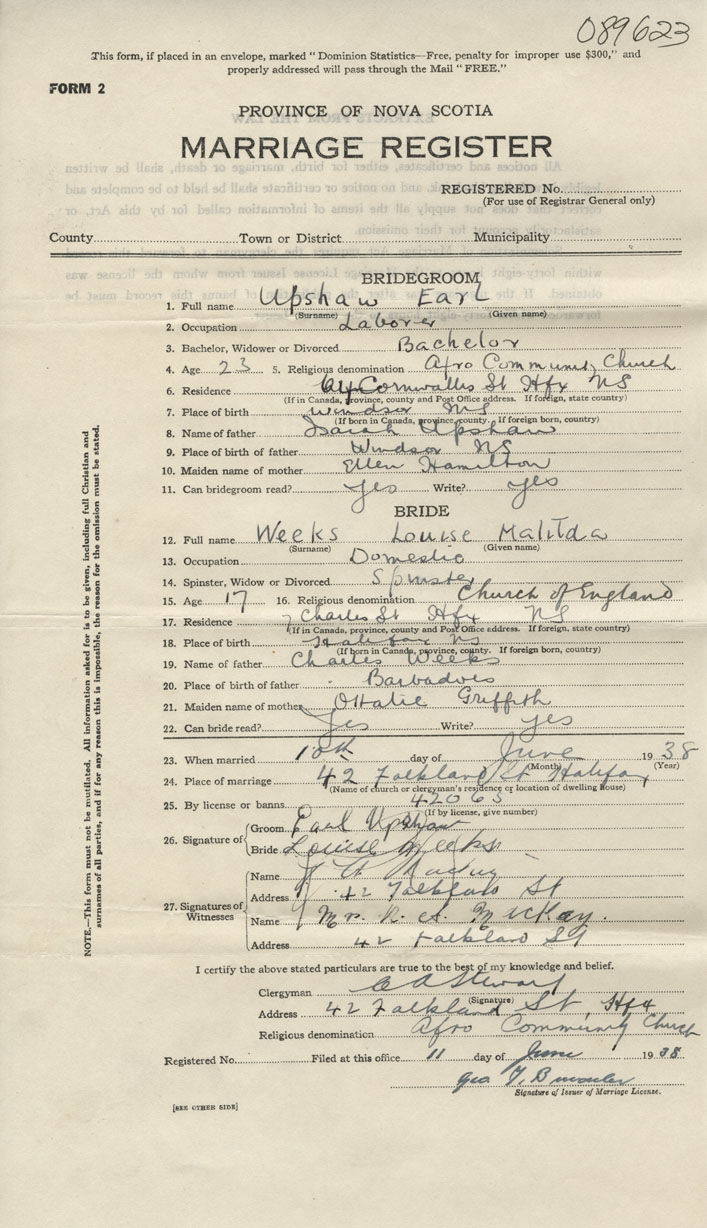 089623
This form, if placed in an envelope, marked "Dominion Statistics—Free, penalty for improper use $300," and
properly addressed will pass through the Mail "FREE."
FORM 2
PROVINCE OF NOVA SCOTIA
MARRIAGE REGISTER
REGISTERED No.
(For use of Registrar General only)
County Town or District Municipality
BRIDEGROOM
1. Full name Upshaw Earl
(Surname) (Given name)
2. Occupation Laborer
3. Bachelor, Widower or Divorced Bachelor
4. Age 23 5. Religious denomination Afro Community Church
6. Residence Cornwallis St Hfx NS
(If in Canada, province, county and Post Office address. If foreign, state country)
7. Place of birth Windsor NS
(If born in Canada, province, county. If foreign born, country)
8. Name of father Upshaw
9. Place of birth of father Windsor NS
10. Maiden name of mother Ellen Hamilton
11. Can bridegroom read? Yes Write? yes
BRIDE
12. Full name Weeks Louise Matilda
(Surname) (Given name)
13. Occupation Domestic
14. Spinster, Widow or Divorced Spinster
15. Age 17 16. Religious denomination Church of England
17. Residence Charles St Hfx NS
(If in Canada, province, county and Post Office address. If foreign, state country)
18. Place of birth Halifax NS
(If born in Canada, province, county. If foreign born, country)
19. Name of father Charles Weeks
20. Place of birth of father Barbados
21. Maiden name of mother Ottalie Griffith
22. Can bride read? Yes Write? yes
23. When married 10th day of June 1938
(Month) (Year)
24. Place of marriage 42 Falkland St Halifax
(Name of church or clergyman's residence or location of dwelling house)
25. By license or banns 42065
(If by license, give number)
26. Signature of
Groom Earl Upshaw
Bride Louise Weeks
27. Signatures of Witnesses
Name
Address 42 Falkland St
Name Mrs. R. A. McKay.
Address 42 Falkland St
I certify the above stated particulars are true to the best of my knowledge and belief.
Clergyman Stewart
(Signature)
Address 42 Falkland St, Hfx
Religious denomination Afro Community Church
Registered No. Filed at this office 11 day of June 1938
Geo. T.
Signature of Issuer of Marriage License.
[SEE OTHER SIDE]
NOTE.—This form must not be mutilated. All information asked for is to be given, including full Christian and
surnames of all parties, and if for any reason this is impossible, the reason for the omission must be stated.